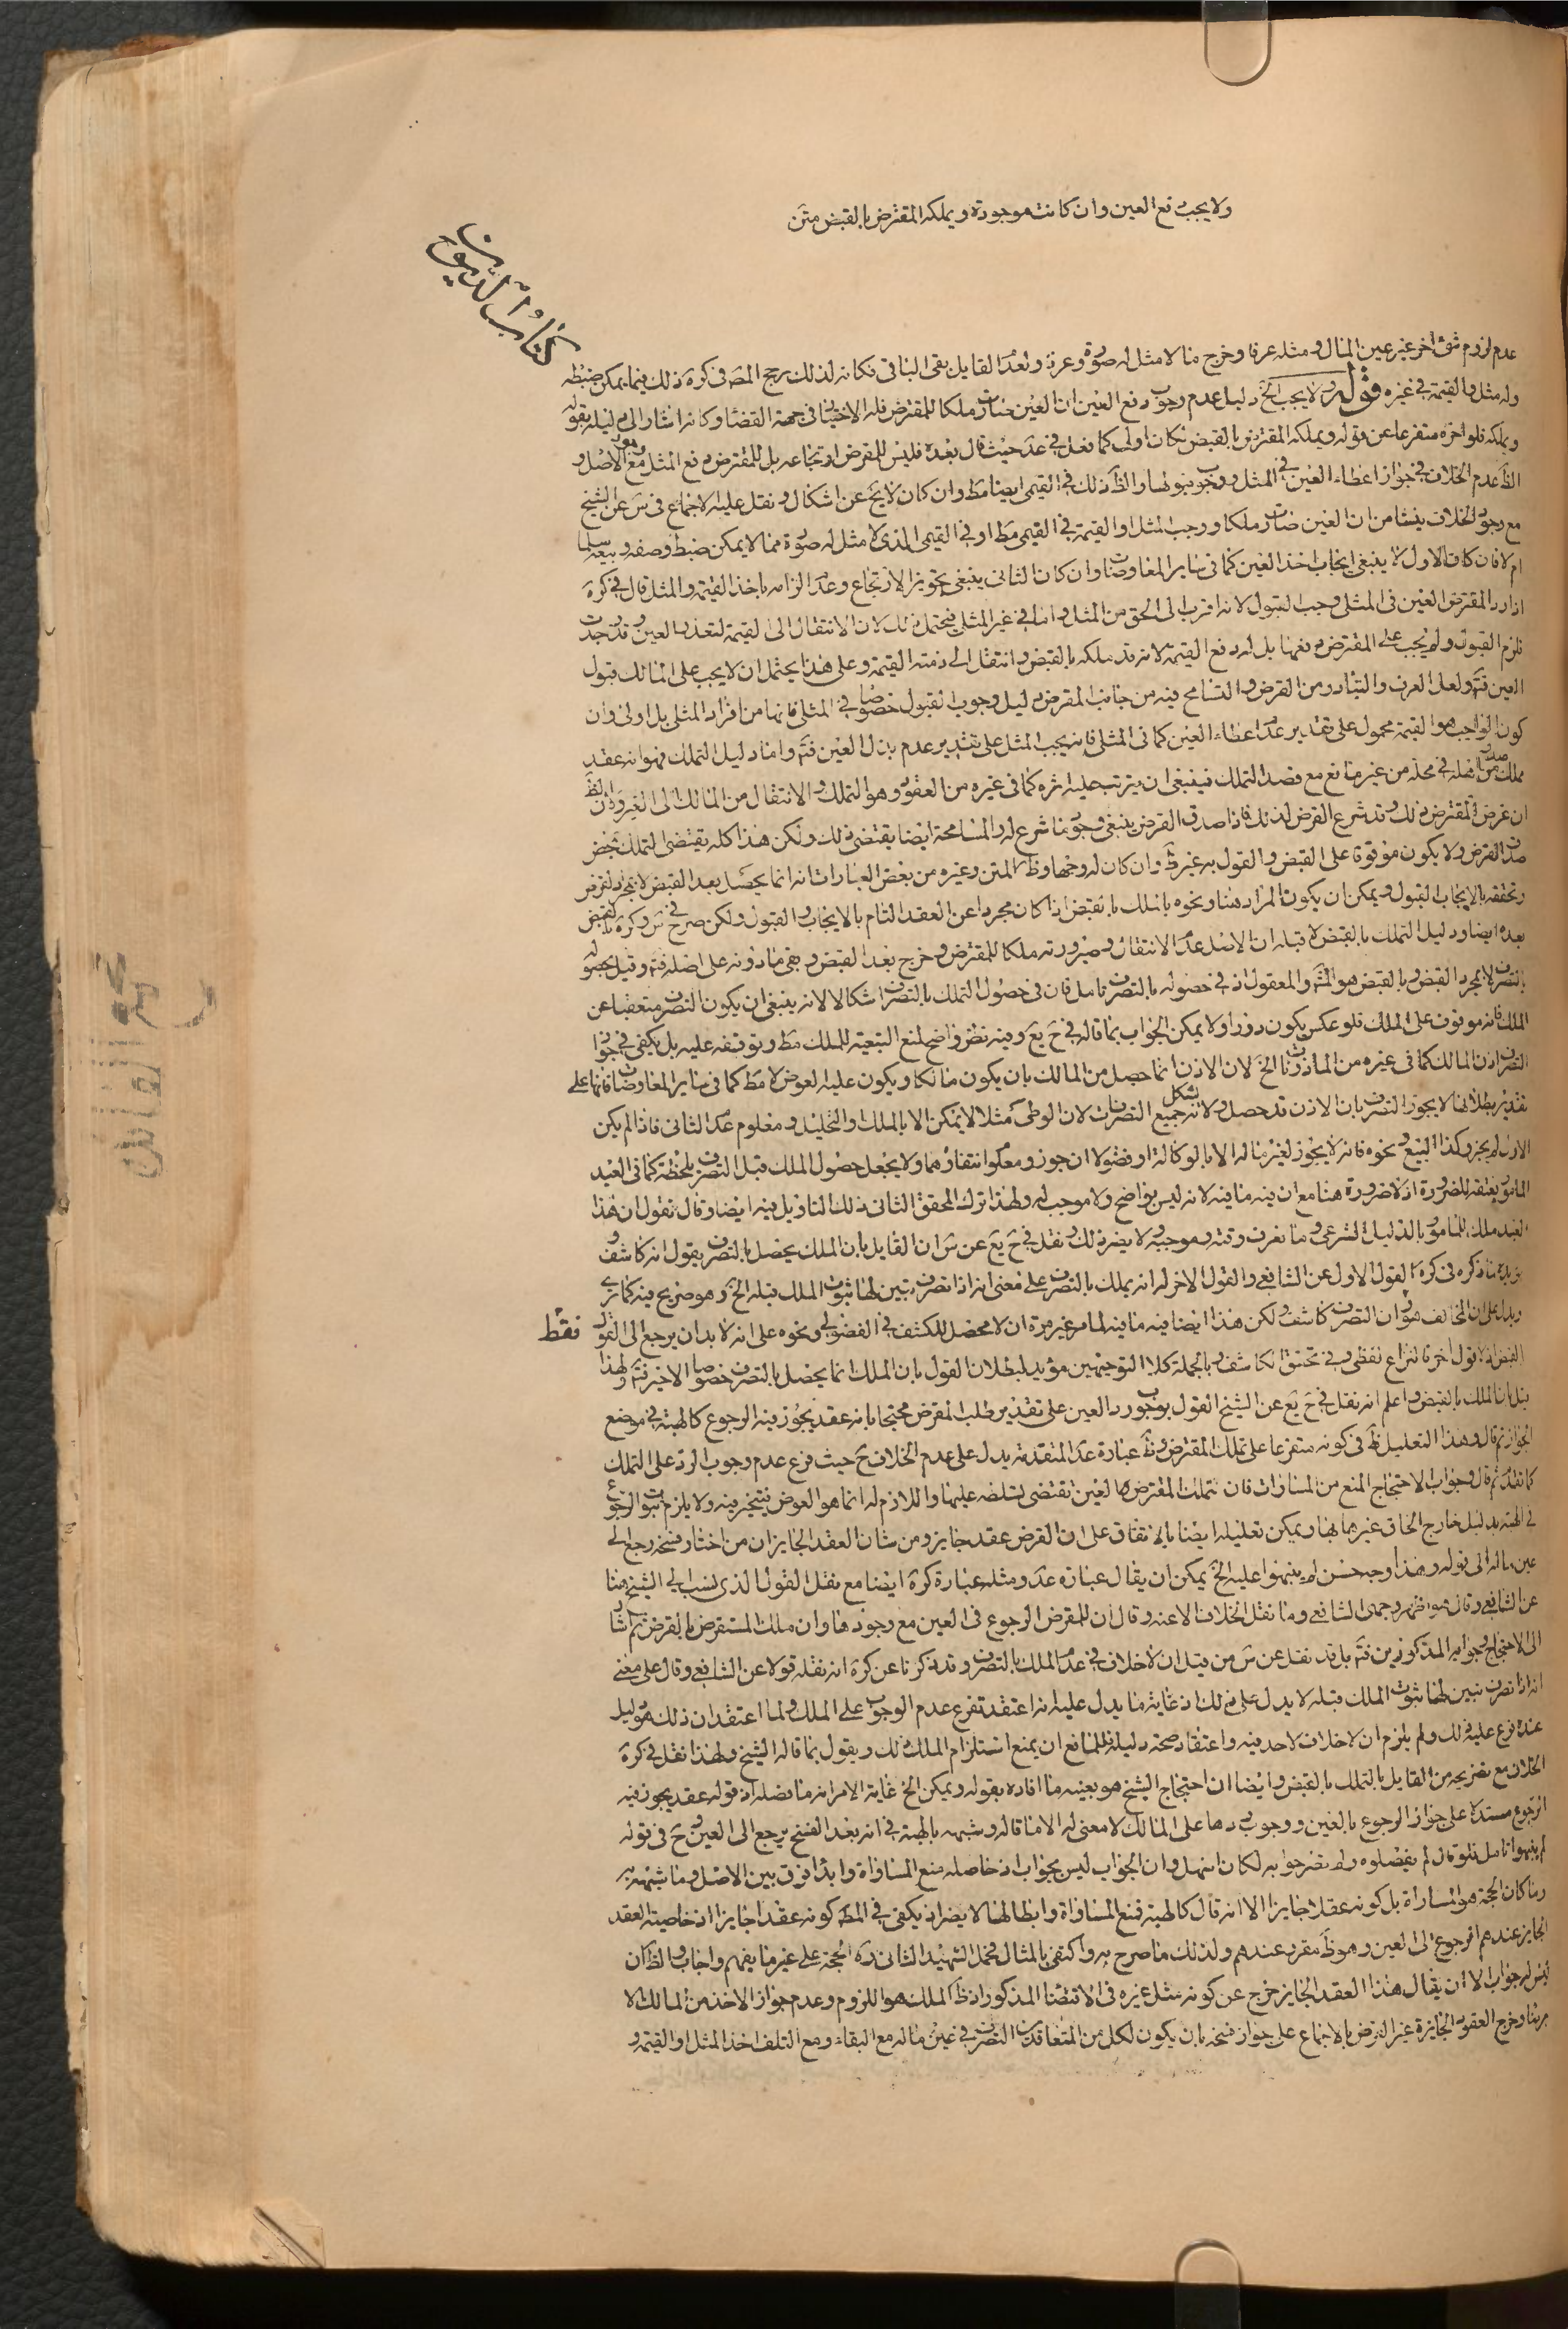 ولا يجب دفع العين وان كانت موجودة ويملكه المقترض بالقبض متن
كتاب الديون
عدم لزوم شئ اخر غير عين المال ومثله عرفا وخرج ما لا مثل له صورة وعرفا وبعد القايل بقى الباقى فكانه لذلك رجح المصـ فى كره ذلك فيما يمكن ضبطه
وله مثل والقيمة فى غيره قوله ولا يجب الخ دليل عدم وجوب دفع العين ان العين صارت ملكا للمقترض فله الاختيار فى جهة القضا وكانه اشار الى دليله بقوله
ويملكه فلو اخره متفرعا عن قوله ويملكه المقترض بالقبض لكان اولى كما فعل فى عد حيث قال بعده فليس للمقرض ارتجاعه بل للمقترض دفع المثل مع وجود الاصل و
الظ عدم الخلاف فى جواز اعطاء العين فى المثلى ووجوب قبولها والظ ذلك فى القيمى ايضا مط وان كان لا يخ عن اشكال ونقل عليه الاجماع فى س عن الشيخ
مع وجود الخلاف ينشا من ان العين صارت ملكا ووجب المثل او القيمة فى القيمى مط او فى القيمى الذى لا مثل له صورة مما لا يمكن ضبط وصفه وبيعه سلما
ام لا فان كان الاول لا ينبغى ايجاب اخذ العين كما فى ساير المعاوضات وان كان الثانى ينبغى تجويز الارتجاع وعدم الزامه باخذ القيمة والمثل قال فى كره
اذا رد المقترض العين فى المثلى وجب القبول لانه اقرب الى الحق من المثل واما فى غير المثلى فيحتمل ذلك لان الانتقال الى القيمة لتعذر العين وقد وجدت
فلزم القبول ولم يجب على المقترض دفعها بل له دفع القيمة لانه قد ملكه بالقبض وانتقل الى ذمته القيمة وعلى هذا يحتمل ان لا يجب على المالك قبول
العين فتم ولعل العرف والتبادر من القرض والتسامح فيه من جانب المقرض دليل وجوب القبول خصوصا فى المثلى فانها من افراد المثلى بل اولى وان
كون الواجب هو القيمة محمول على تقدير عدم اعطاء العين كما فى المثلى فانه يجب المثل على تقدير عدم بذل العين فتم واما دليل التملك فهو انه عقد
مملك صدر من اهله فى محله من غير مانع مع قصد التملك فينبغى ان يترتب عليه اثره كما فى غيره من العقود وهو التملك والانتقال من المالك الى الغير والظ
ان غرض المقترض ذلك وقد شرع القرض لذلك فاذا صدق القرض ينبغى وجود ما شرع له والمسامحة ايضا يقتضى ذلك ولكن هذا كله يقتضى التملك بمحض
صدق القرض ولا يكون موقوفا على القبض والقول به غير ظ وان كان له وجها وظ المتن وغيره من بعض العبارات انه انما يحصل بعد القبض لا بمجرد القرض
وتحققه بالايجاب القبول ويمكن ان يكون المراد هنا ونحوه بانه يملك بالقبض اذا كان مجردا عن العقد التام بالايجاب والقبول ولكن صرح فى س وكره بالقبض
بعده ايضا ودليل التملك بالقبض لا قبله ان الاصل عدم الانتقال وصيرورته ملكا للمقترض وخرج بعد القبض وبقى ما دونه على اصله فتم وقيل يحصوله
بالتصرف لا بمجرد القبض وبالقبض هو المشـ والمعقول اذ فى حصوله بالتصرف تامل فان فى حصول التملك بالتصرف اشكالا لانه ينبغى ان يكون التصرف متعقبا عن
الملك فانه موقوف على الملك فلو عكس يكون دورا ولا يمكن الجواب بما قاله فى ح يع وفيه نظر واضح لمنع التبعية للملك مط وتوقفه عليه بل يكفى فى جواز
التصرف اذن المالك كما فى غيره من الماذونات الخ لان الاذن انما حصل من المالك بان يكون مالكا ويكون عليه العوض لا مط كما فى ساير المعاوضات فانها على
تقدير بطلانها لا يجوز التصرف بان الاذن قد حصل ولانه يشكل جميع التصرفات لان الوطى مثلا لا يمكن الا بالملك والتحليل ومعلوم عدم الثانى فاذا لم يكن
الاول لم يجز وكذا البيع ونحوه فانه لا يجوز لغير ماله الا بالوكالة او فضولا ان جوز ومعلوم انتفاؤهما ولا يجعل حصول الملك قبل التصرف بلحظة كما فى العبد
المامور بعتقه للضرورة اذ لا ضرورة هنا مع ان فيه ما فيه لانه ليس بواضح ولا موجب له ولهذا ترك المحقق الثانى ذلك التاويل فيه ايضا وقال نقول ان هذا
العبد ملك للمامور بالدليل الشرعى وما نعرف وقته وموجبه ولا يضر ذلك ونقل فى ح يع عن س ان القايل بان الملك يحصل بالتصرف يقول انه كاشف و
يؤيده ما ذكره فى كره القول الاول عن الشافعى والقول الاخر له انه يملك بالتصرف على معنى انه اذا تصرف تبين لها ثبوت الملك قبله الخ وهو صريح فيه كما ترى
ويدل على ان المخالف هو ان التصرف كاشف ولكن هذا ايضا فيه ما فيه لما مر غير مرة ان لا محصل للكشف فى الفضولى ونحوه على انه لا بد ان يرجع الى القول فقط
القبض اذ لا قول اخر فالنزاع لفظى وفى تحقق الكاشف وبالجملة كلا التوجيهين مؤيد لبطلان القول بان الملك انما يحصل بالتصرف خصوصا الاخير فتم ولهذا
بنا الملك بالقبض واعلم انه نقل فى ح يع عن الشيخ القول بوجوب رد العين على تقدير طلب المقرض محتجا بانه عقد يجوز فيه الرجوع كالهبة فى موضع
الجواز ثم قال وهذا التعليل ظ فى كونه متفرعا على تملك المقترض وظ عبارة عد المتقدمة يدل على عدم الخلاف ح حيث فرع عدم وجوب الرد على التملك
كما تقدم ثم قال وجواب الاحتجاج المنع من المساوات فان تملك المقترض العين تقتضى تسلطه عليها واللازم له انما هو العوض فيتخير فيه ولا يلزم ثبوت الرجوع
فى الهبة بدليل خارج الحاق غيرها بها ويمكن تعليله ايضا بالاتفاق على ان القرض عقد جايز ومن شان العقد الجايز ان من اختار فسخه رجع الى
عين ماله الى قوله وهذا وجه حسن لم ينبهوا عليه الخ يمكن ان يقال عبارة عد ومثله عبارة كره ايضا مع نقل القول الذى نسب الى الشيخ هنا
عن الشافعى وقال هو اظهر وجهى الشافعى وما نقل الخلاف الا عنه وقال ان للمقرض الرجوع فى العين مع وجودها وان ملك المستقرض بالقرض ثم اشار
الى الاحتجاج وجوابه المذكورين فتم بل قد نقل عن س من قبل ان لا خلاف فى عدم الملك بالتصرف وقد ذكرنا عن كره انه نقله قولا عن الشافعى وقال على معنى
انه اذا تصرف تبين لها ثبوت الملك قبله لا يدل على ذلك اذ غاية ما يدل عليه انه اعتقد تفرع عدم الوجوب على الملك ولما اعتقد ان ذلك هو دليل
عنده فرع عليه ذلك ولم يلزم ان لا خلاف لاحد فيه واعتقاد صحة دليله فللمانع ان يمنع استلزام الملك ذلك ويقول بما قاله الشيخ ولهذا نقل فى كره
الخلاف مع تصريحه من القايل بالتملك بالقبض وايضا ان احتجاج الشيخ هو بعينه ما افاده بقوله ويمكن الخ غاية الامر انه ما فصله اذ قوله عقد يجوز فيه
الرجوع مستدلا على جواز الرجوع بالعين ووجوب ردها على المالك لا معنى له الا ما قاله وشبهه بالهبة فى انه بعد الفسخ يرجع الى العين وح فى قوله
لم ينبهوا تامل فلو قال لم يفصلوه ولم يتعرضوا به لكان اسهل وان الجواب ليس بجواب اذ حاصله منع المساواة وابداء فرق بين الاصل وما يشبه به
وما كان الحجة هو المساواة بل كونه عقدا جايزا الا انه قال كالهبة فمنع المساواة وابطالها لا يضر اذ يكفى فى المطـ كونه عقدا جايزا اذ خاصية العقد
الجايز عندهم الرجوع الى العين وهو ظ مقرر عندهم ولذلك ما صرح به واكتفى بالمثال فحمل الشهيد الثانى ره الحجة على غير ما يفهم واجاب والظ ان
ليس له جواب الا ان يقال هذا العقد الجايز خرج عن كونه مثل غيره فى الاقتضا المذكور اذ ظ الملك هو اللزوم وعدم جواز الاخذ من المالك الا
برضا وخرج العقود الجايزة غير القرض بالاجماع على جواز فسخه بان يكون لكل من المتعاقدين التصرف فى عين ماله مع البقاء ومع التلف اخذ المثل او القيمة و